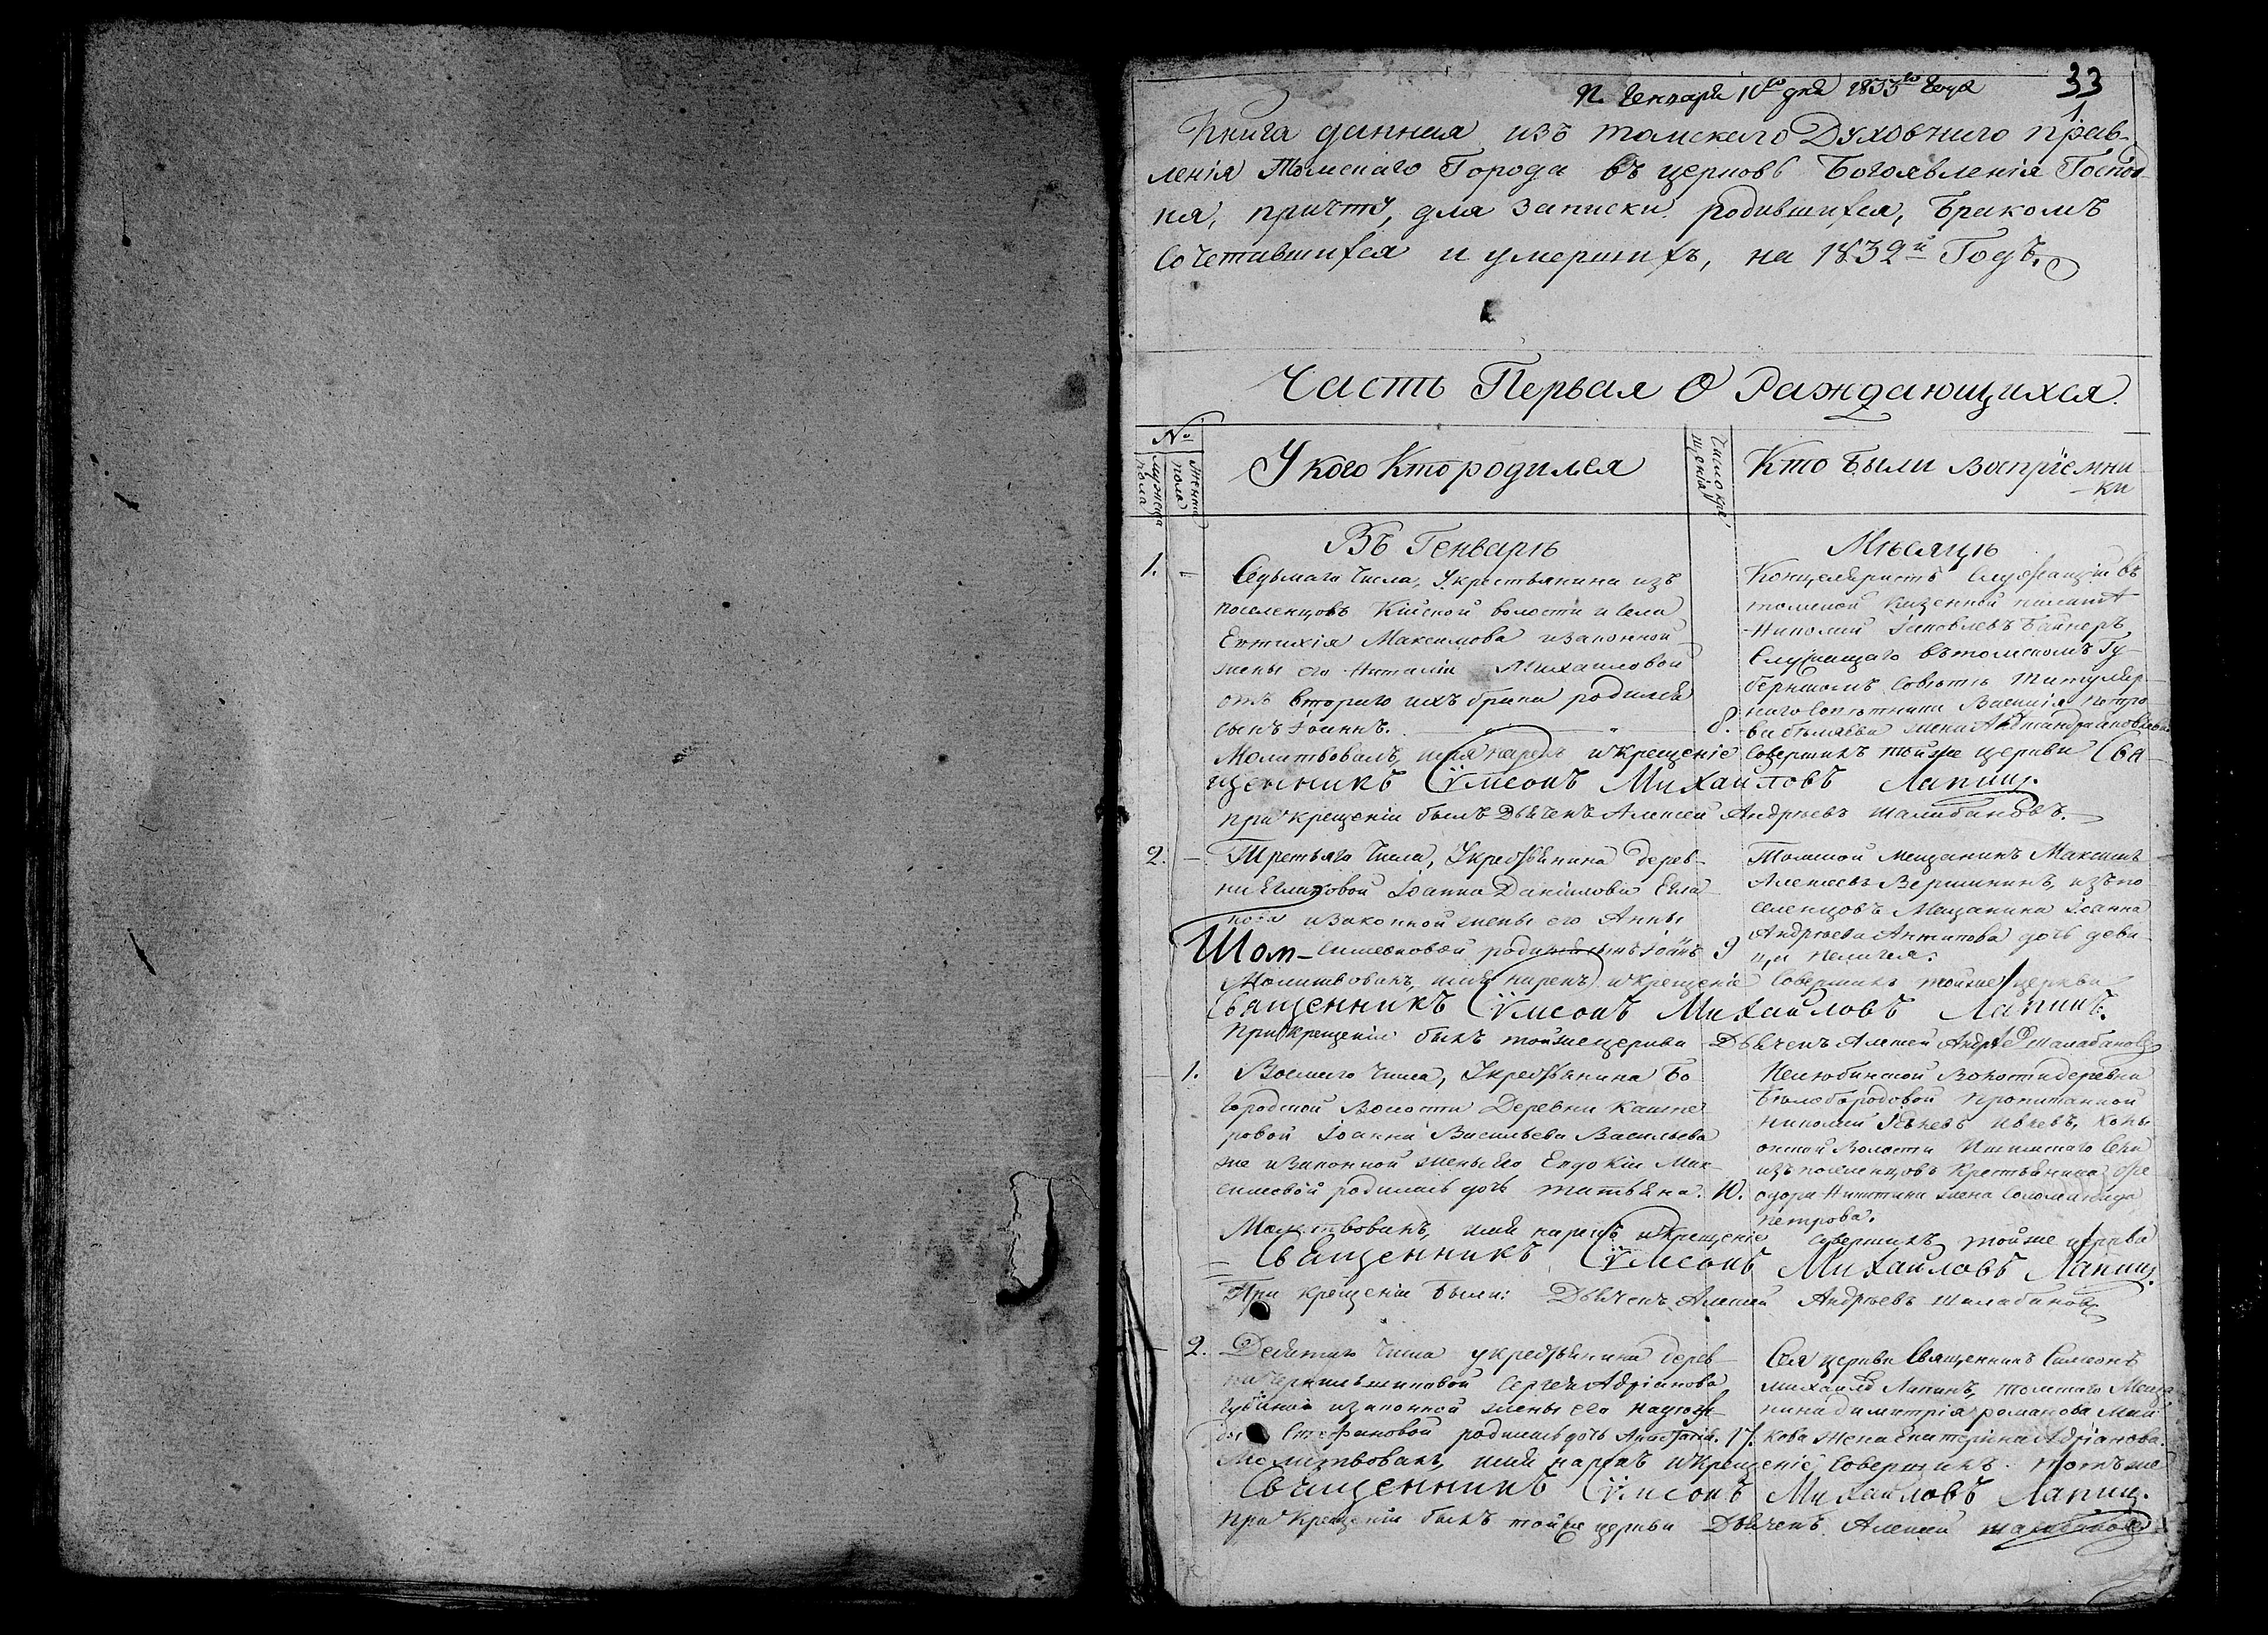 Генваря 10го дня 1833го Года
33
1.
Книга данная изъ томскаго Духовнаго прав-
ленія Томскаго Города въ церковь Богоявленія Господ-
ня, причту, для записки родившихся, бракомъ
сочетавшихся и умершихъ, на 1832й Годъ.
Часть Первая О Раждающихся.
№
мужеска пола
женска пола
У кого Кто родился
Число крещенія
Кто были воспріемни-
ки
Въ Генварѣ
Мѣсяцѣ
1. -
Седьмаго числа, У крестьянина изъ
поселенцовъ Кійской волости и села
Евтихія Максимова и законной
жены его Наталіи Михаиловой
отъ втораго ихъ брака родился
сынъ Іоаннъ.
8.
Концеляристъ служащій въ
томской казенной палатѣ
Николай Іаковлевъ
служащаго въ томскомъ Гу-
бернскомъ Совѣтѣ Титуляр-
наго Совѣтника Василія Петро
жена
Молитвовалъ, имя нарекъ и крещеніе совершилъ тойже церкви Свя-
щенникъ Сѵмеонъ Михаиловъ Лапинъ.
при крещеніи былъ Дьячекъ Алексей Андреевъ Шалабановъ.
2. -
Третьяго числа, У крестьянина дерев-
ни Еглаковой Іоанна Даніилова Егла
кова и законной жены его Анны
симеоновой родился сынъ Іоаннъ
9
Томской мещанинъ Максимъ
Алексеевъ Вершининъ, изъ по
селенцовъ Мещанина Іоанна
Андреева Антипова дочь деви
ца Пелагея.
Шом-
Молитвовалъ, имя нарекъ и крещеніе совершилъ тойже церкви
Священникъ Сѵмеонъ Михаиловъ Лапинъ.
При крещеніи былъ тойже церкви Дьячекъ Алексей Андреевъ Шалабановъ
- 1.
Восмаго числа, У крестьянина Бо
городской Волости Деревни
ровой Іоанна Васильева Васильева
же и законной жены его Евдокіи Мак-
симовой родилась дочь Татьяна.
10.
Нелюбинской Волости деревни
Бѣлобородовой пропитанной
Николай Ивлевъ,
Волости Села
изъ поселенцовъ Крестьянина Фе
одора Никитина жена Соломанида
Петрова.
Молитвовалъ, имя нарекъ и крещеніе совершилъ тойже церкви
Священникъ Сѵмеонъ Михаиловъ Лапинъ.
При крещеніи были: Дьячекъ Алексей Андреевъ Шалабановъ
- 2.
Девятаго числа у крестьянина дерев-
ни Сергея Адріанова
Губина и законной жены его Надеж-
ды Стефановой родилась дочь Анастасія.
17.
Сея церкви Священникъ Симеонъ
Михаиловъ Лапинъ, томскаго Меща
нина Димитрія Романова Май
кова жена Екатерина Адріанова.
Молитвовалъ, имя нарекъ и крещеніе совершилъ тотъже
Священникъ Сѵмеонъ Михаиловъ Лапинъ.
При крещеніи былъ тойже церкви Дьячекъ Алексей Шалабановъ